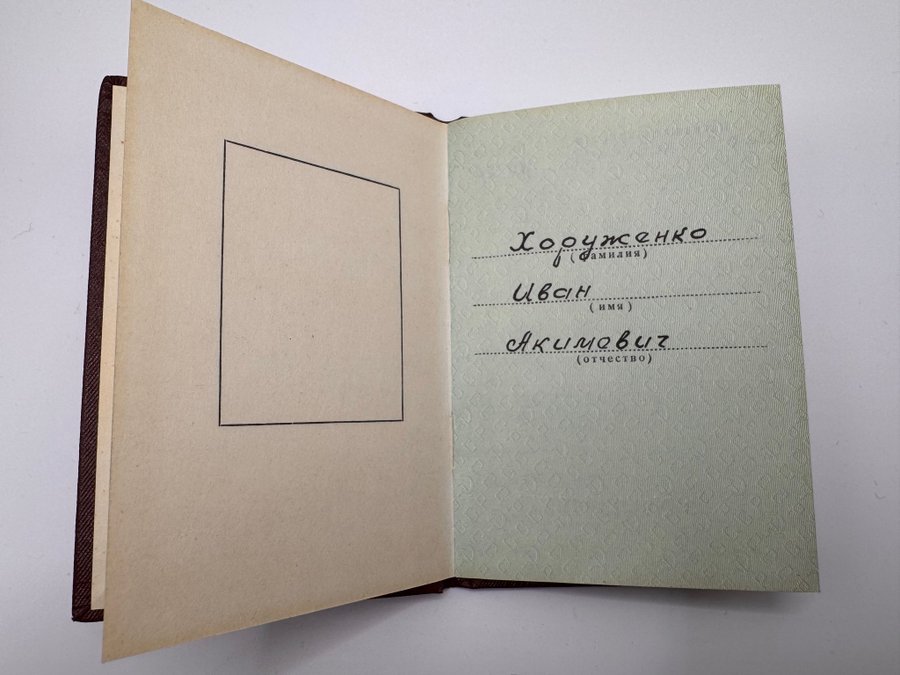 Хоруженко
(фамилия)
Иван
(имя)
Акимович
(отчество)